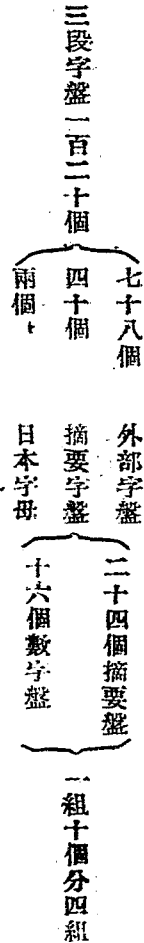 三段字盤一百二十個
七十八個　外部字盤
四十個　摘要字盤
兩個　日本字母
二十四個摘要盤
十六個數字盤
一組十個分四組